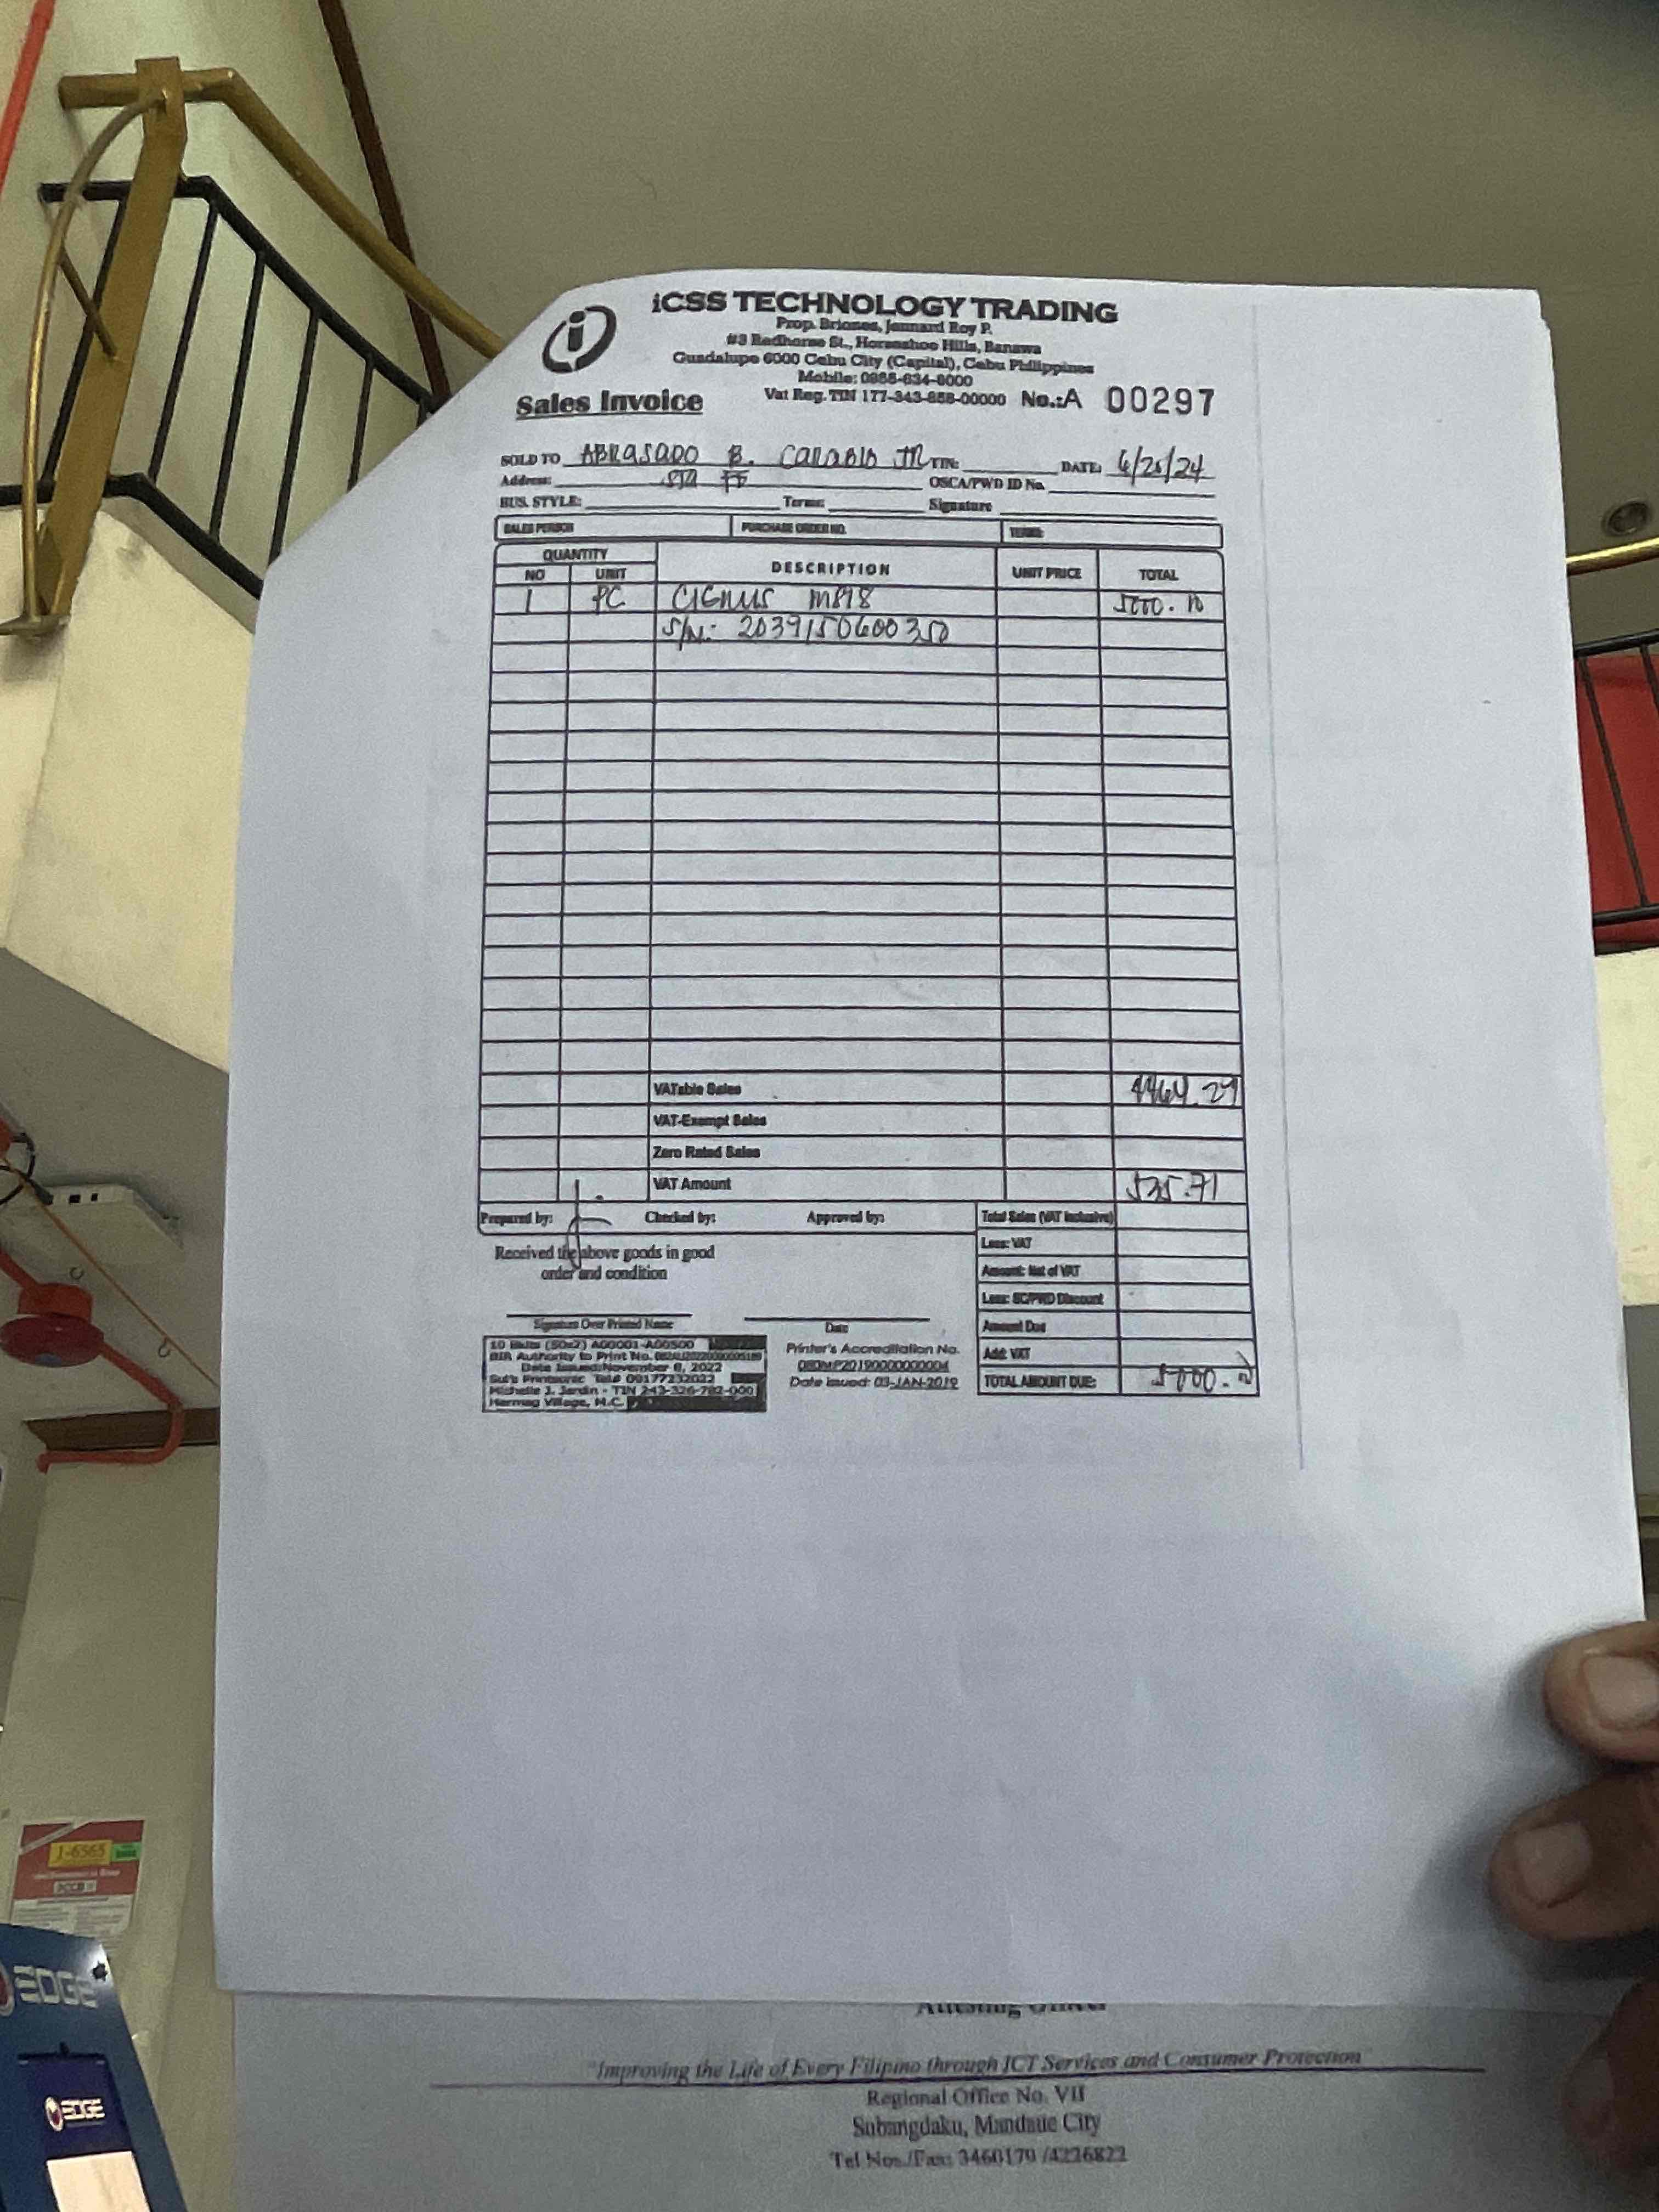 iCSS TECHNOLOGY TRADING
Prop. Briones, Jennard Roy P.
#3 Redhorse St., Horseshoe Hills, Banawa
Guadalupe 6000 Cebu City (Capital), Cebu Philippines
Mobile: 0968-634-8000
Sales Invoice
Vat Reg. TIN 177-343-858-00000 No.:A 00297
SOLD TO ABRASADO B. CARABIO JR TIN: DATE: 6/25/24
Address: STA FE OSCA/PWD ID No.
BUS. STYLE: Terms: Signature
SALES PERSON PURCHASE ORDER NO. TERMS:
QUANTITY
NO UNIT DESCRIPTION UNIT PRICE TOTAL
1 PC CIGNUS M898 5000.00
S/N: 2039150600350
VATable Sales 4464.29
VAT-Exempt Sales
Zero Rated Sales
VAT Amount 535.71
Prepared by: Checked by: Approved by:
Total Sales (VAT Inclusive)
Less: VAT
Amount: Net of VAT
Less: SC/PWD Discount
Amount Due
Add: VAT
TOTAL AMOUNT DUE: 5000.00
Received the above goods in good
order and condition
Signature Over Printed Name
Date
10 Bklts (50x2) A00001-A00500
BIR Authority to Print No.
Date Issued: November 8, 2022
Sui's Printsonic Tel# 09177232022
Michelle J. Jardin - TIN 243-326-782-000
Hermag Village, M.C.
Printer's Accreditation No.
080MP20190000000004
Date Issued: 03-JAN-2019
Attesting Officer
"Improving the Life of Every Filipino through ICT Services and Consumer Protection
Regional Office No. VII
Subangdaku, Mandaue City
Tel Nos./Fax: 3460179 /4226822
J-6565
EDGE
EDGE